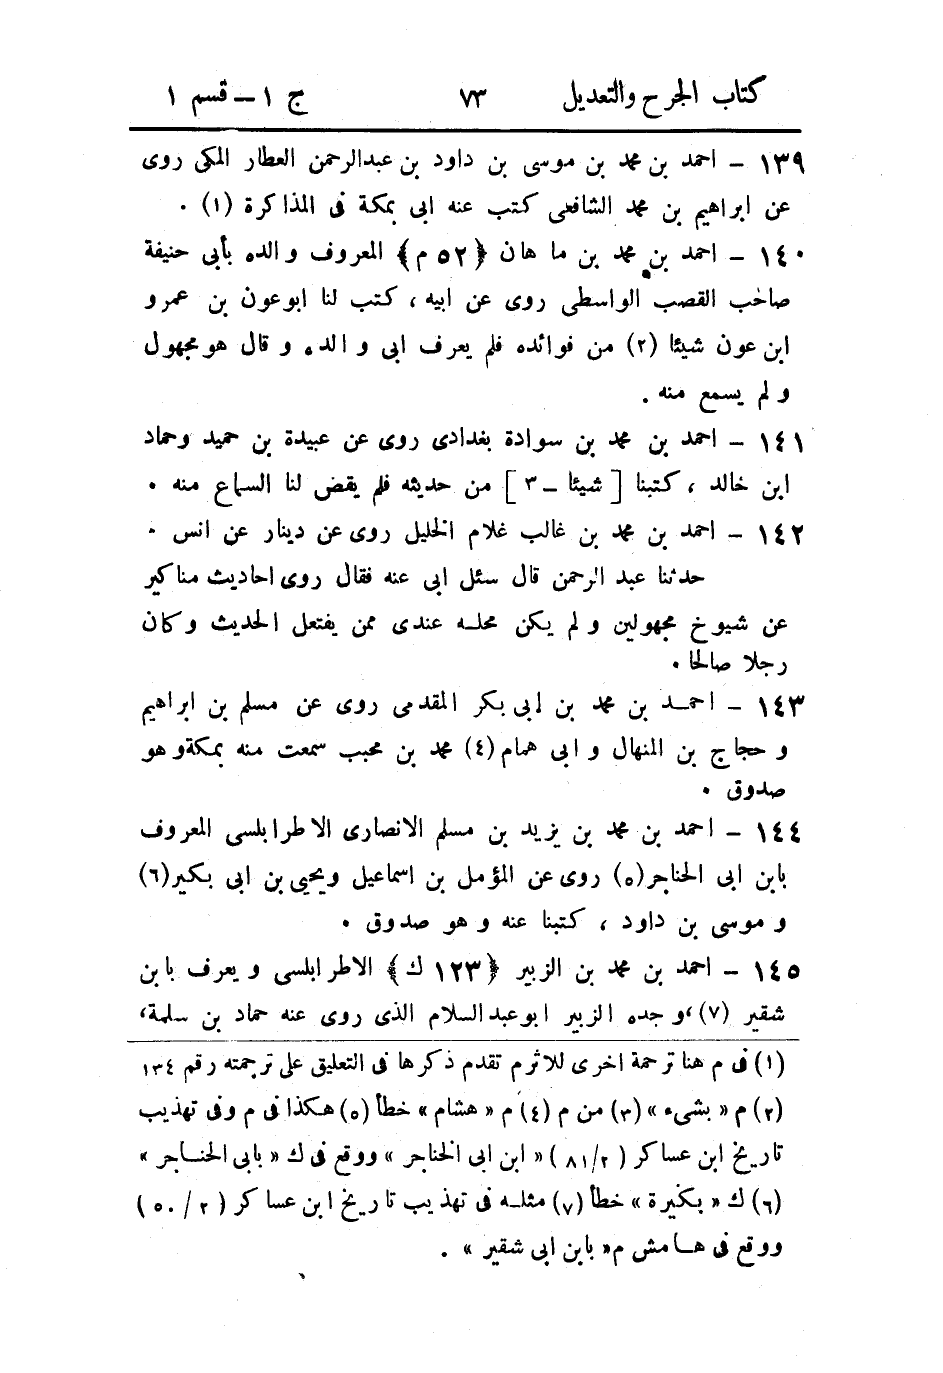 كتاب الجرح والتعديل ٧٣ ج ١ – قسم ١
١٣٩ – احمد بن محمد بن موسى بن داود بن عبدالرحمن العطار المكى روى
عن ابراهيم بن محمد الشافعى كتب عنه ابى بمكة فى المذاكرة (١) ٠
١٤٠ – احمد بن محمد بن ما هان ﴿٥٢ م﴾ المعروف والده بأبى حنيفة
صاحب القصب الواسطى روى عن ابيه ، كتب لنا ابوعون بن عمرو
ابن عون شيئا (٢) من فوائده فلم يعرف ابى والده وقال هو مجهول
ولم يسمع منه .
١٤١ – احمد بن محمد بن سوادة بغدادى روى عن عبيدة بن حميد وحماد
ابن خالد ، كتبنا [ شيئا – ٣ ] من حديثه فلم يقض لنا السماع منه ٠
١٤٢ – احمد بن محمد بن غالب غلام الخليل روى عن دينار عن انس ٠
حدثنا عبد الرحمن قال سئل ابى عنه فقال روى احاديث مناكير
عن شيوخ مجهولين ولم يكن محله عندى ممن يفتعل الحديث وكان
رجلا صالحا ٠
١٤٣ – احمد بن محمد بن ابى بكر المقدمى روى عن مسلم بن ابراهيم
وحجاج بن المنهال وابى همام (٤) محمد بن محبب سمعت منه بمكة وهو
صدوق ٠
١٤٤ – احمد بن محمد بن يزيد بن مسلم الانصارى الاطرابلسى المعروف
بابن ابى الحناجر (٥) روى عن المؤمل بن اسماعيل ويحيى بن ابى بكير (٦)
وموسى بن داود ، كتبنا عنه وهو صدوق ٠
١٤٥ – احمد بن محمد بن الزبير ﴿١٢٣ ك﴾ الاطرابلسى ويعرف بابن
شقير (٧) ، وجده الزبير ابوعبدالسلام الذى روى عنه حماد بن سلمة ،
(١) فى م هنا ترجمة اخرى للاثرم تقدم ذكرها فى التعليق على ترجمته رقم ١٣٤
(٢) م « بشىء » (٣) من م (٤) م « هشام » خطأ (٥) هكذا فى م وفى تهذيب
تاريخ ابن عساكر ( ٢/ ٨١ ) « ابن ابى الخناجر » ووقع فى ك « بابى الحناجر »
(٦) ك « بكيرة » خطأ (٧) مثله فى تهذيب تاريخ ابن عساكر ( ٢ / ٥٠ )
ووقع فى هامش م « بابن ابى شقير » .